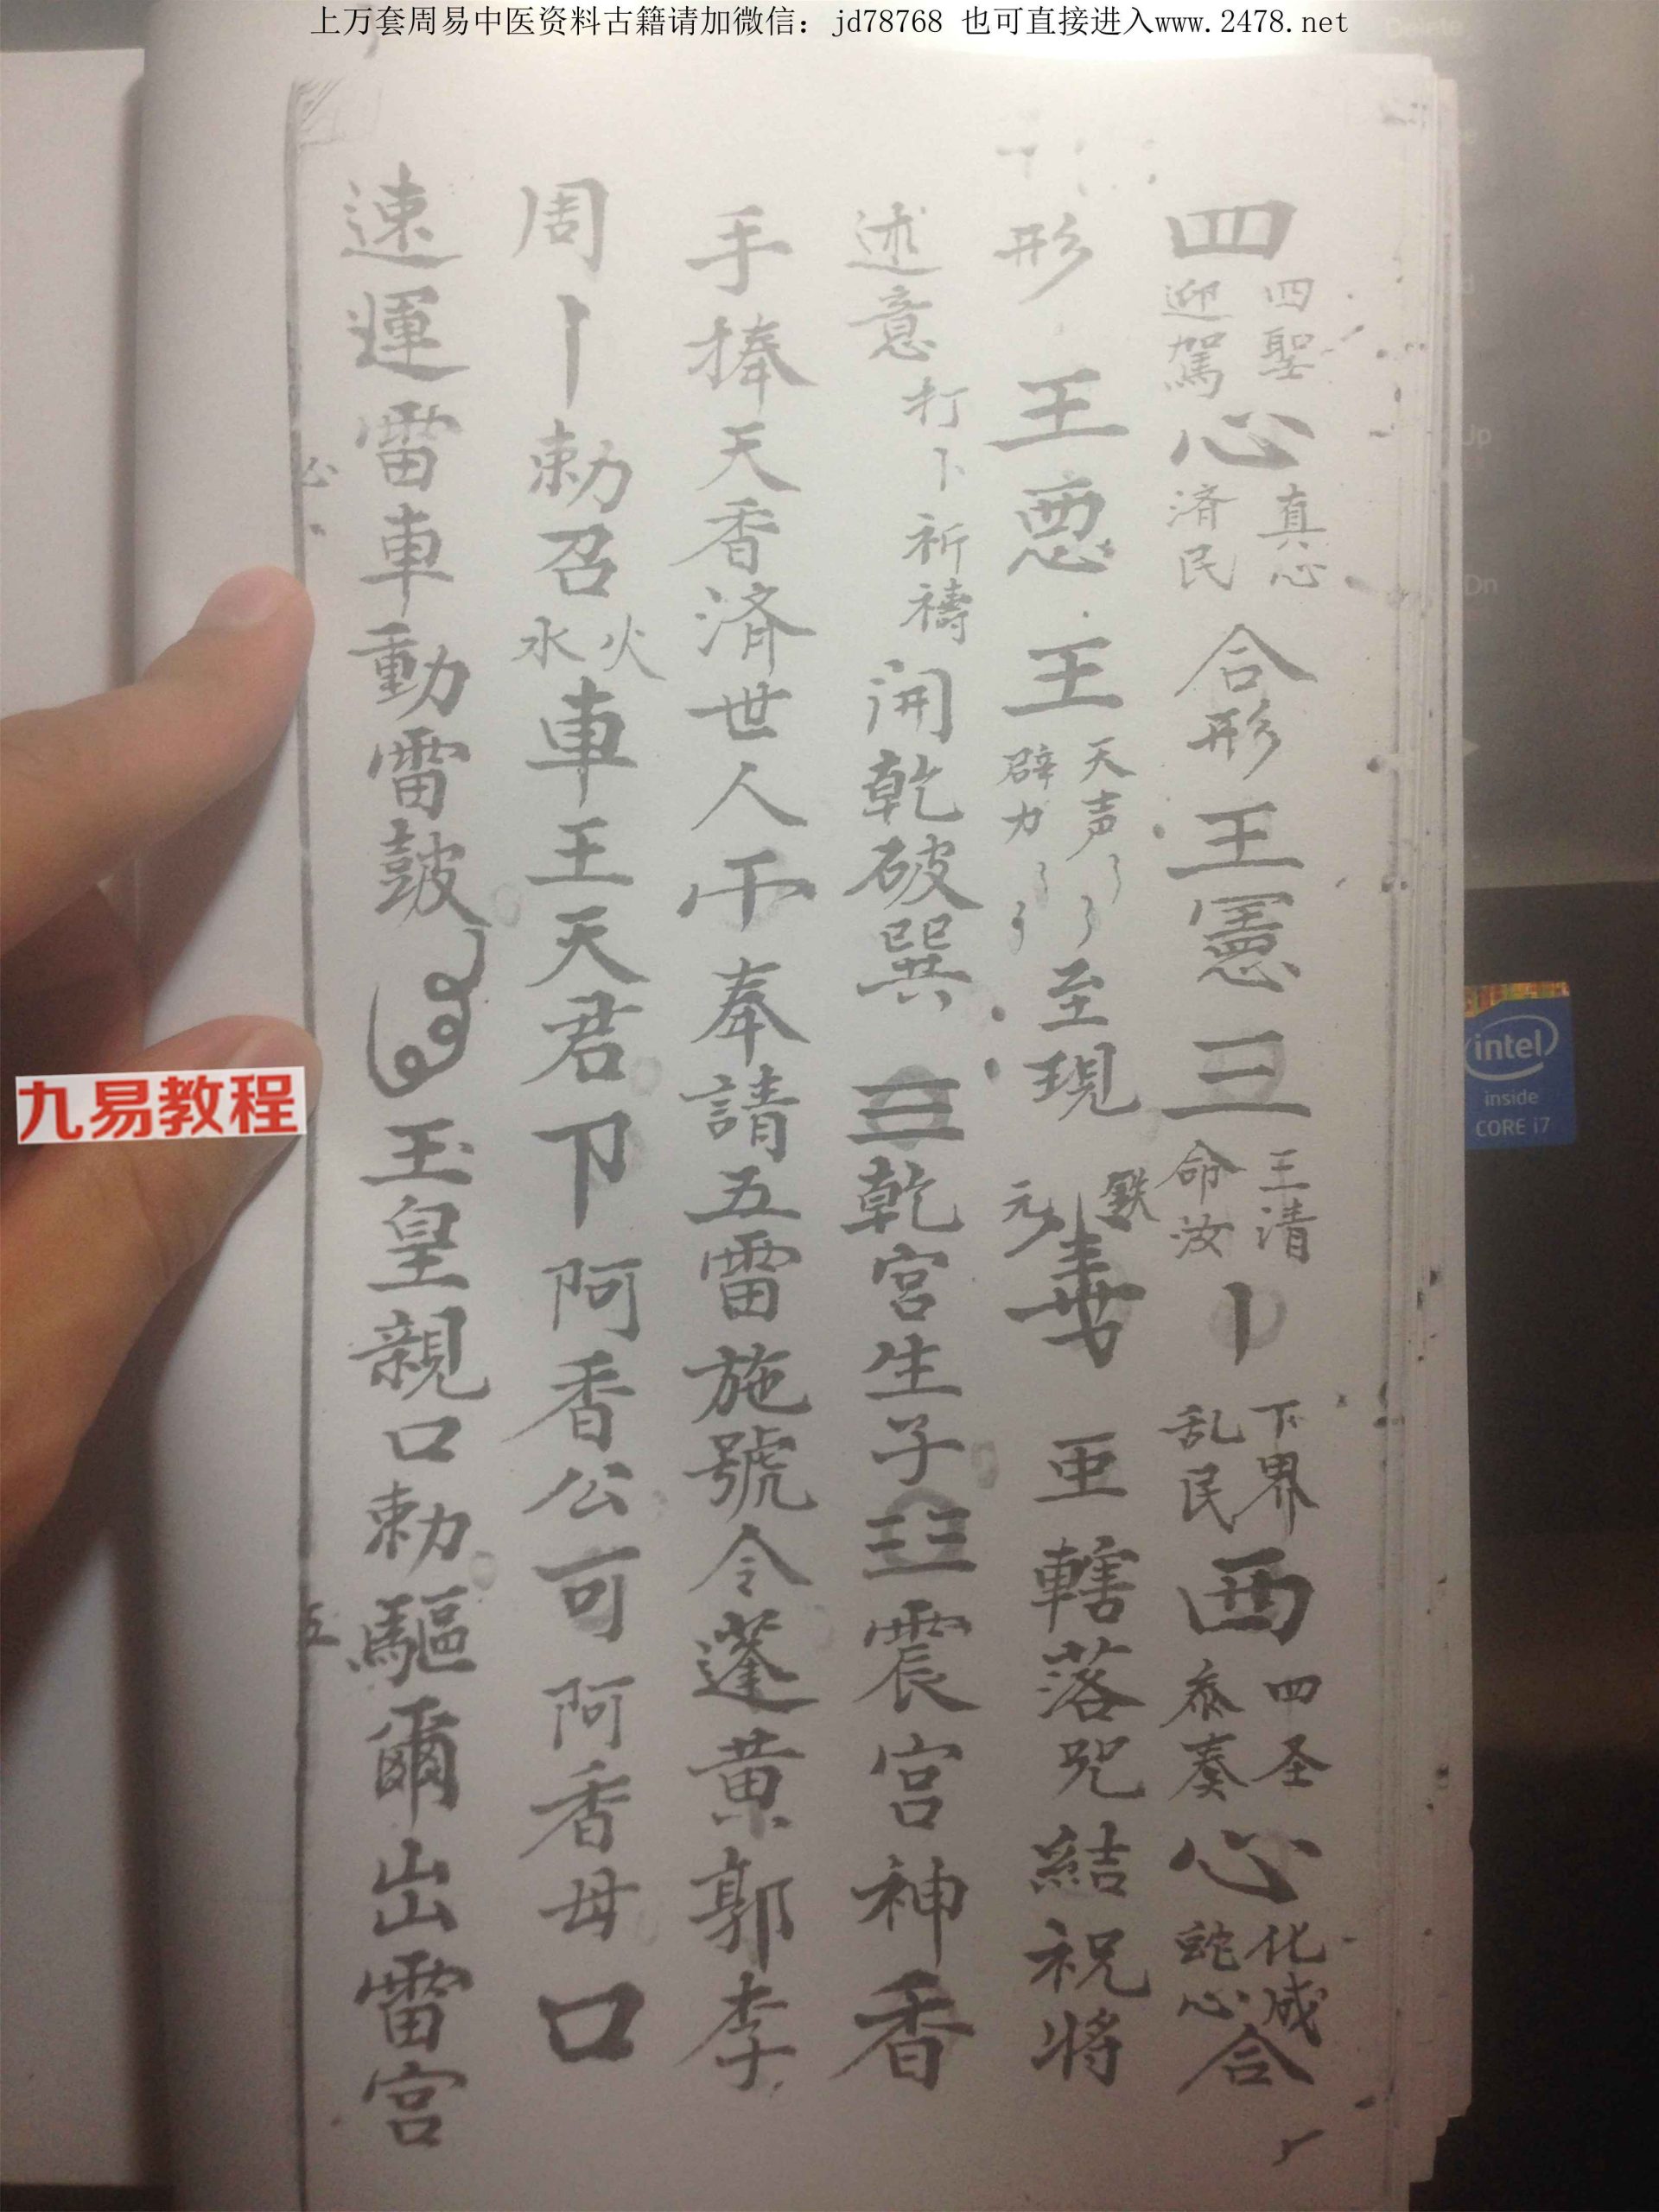 上万套周易中医资料古籍请加微信：jd78768 也可直接进入www.2478.net
四 四聖迎駕 心 真心済民 合形 王 三 三清命汝 丨 下界乱民 西 四圣奏 心 化成蛇心 合
形 王 王 天声辟力 至現 元 鉄 亜 轄落咒結祝將
述意 打卜祈禱 開乾破巽 三 乾宮生子 震宮神香
手捧天香済世人 奉請五雷施號令蓬黄郭李
周丨勅召 火水 車王天君卩阿香公可阿香母口
速運雷車動雷鼓 玉皇親口勅驅爾出雷宮
九易教程
intel
inside
CORE i7